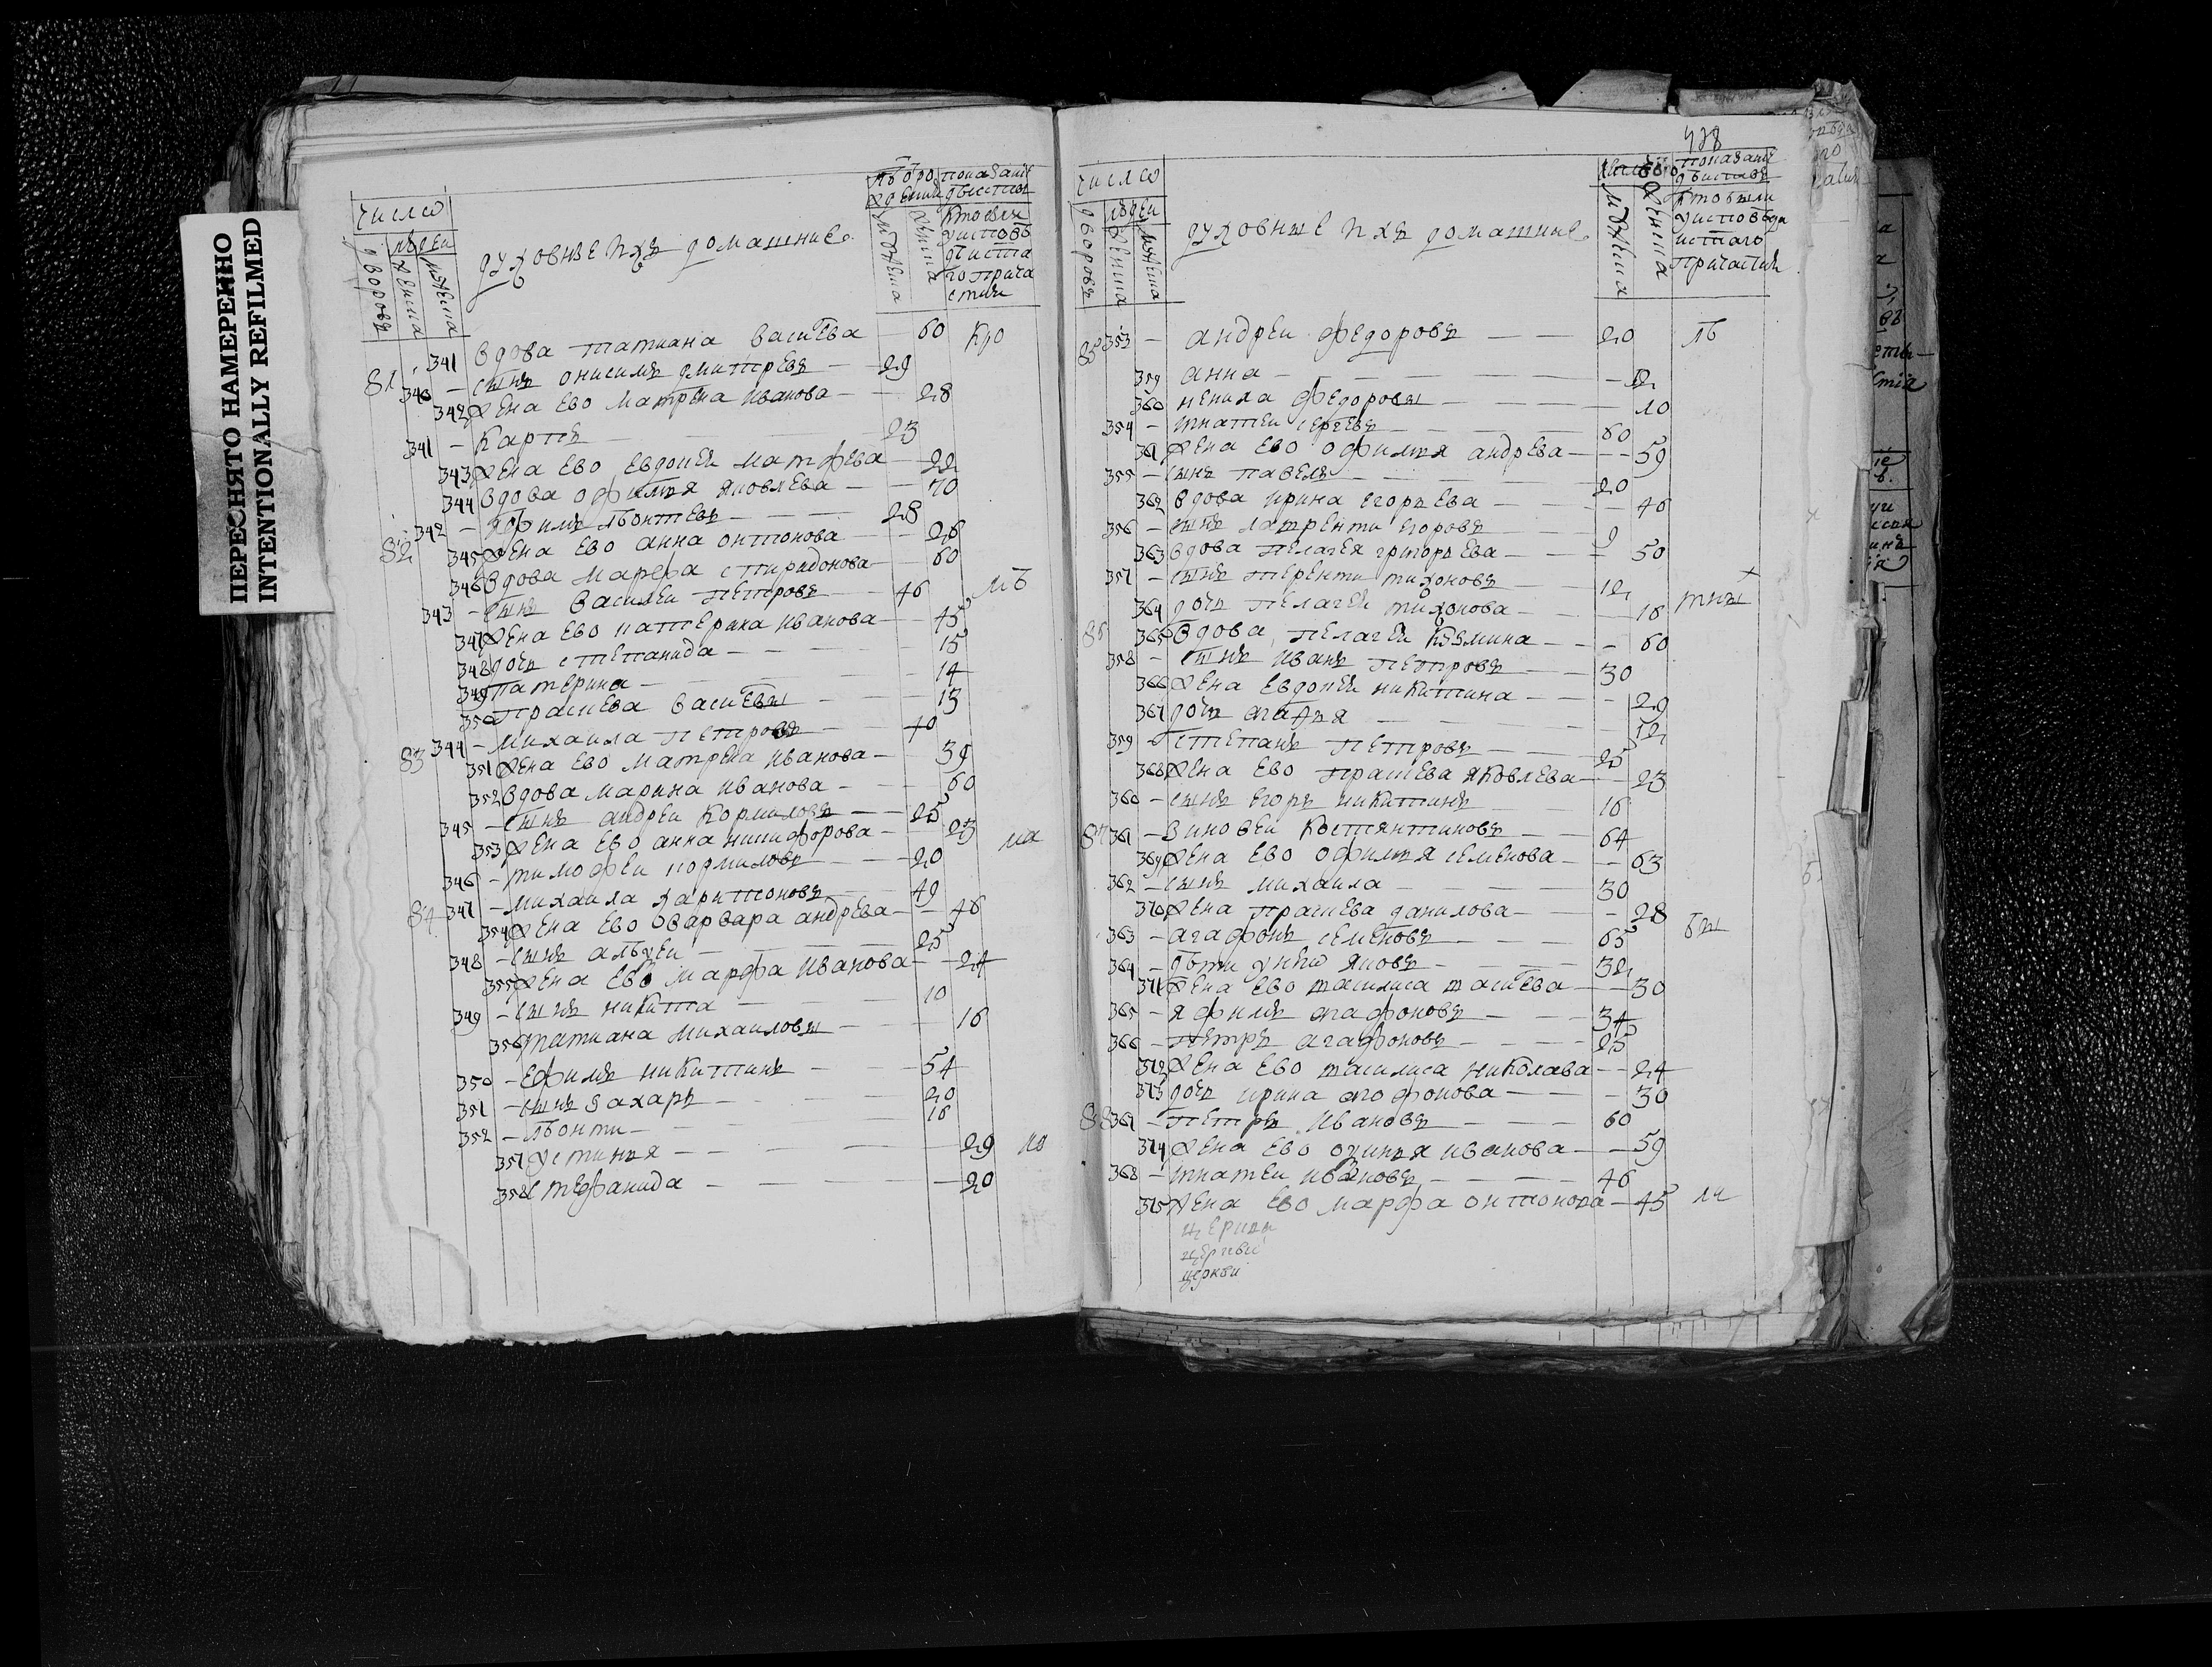 ПЕРЕСНЯТО НАМЕРЕННО
INTENTIONALLY REFILMED
число
дворовъ
людеи
женска
мужеска
духовные ихъ домашние
мужеска
женска
341 вдова татиана васиева 60
81 340 - сынъ онисимъ дмитревъ 29
342 жена ево матрена иванова 28
341 - карпъ 23
343 жена ево евдокея матфева 22
344 вдова офимья яковлева 70
82 342 - ефимъ леонтевъ 28
345 жена ево анна онтонова 26
346 вдова марфа спиридонова 60
343 - сынъ василеи петровъ 46
347 жена ево катерина иванова 45
348 дочь степанида 15
349 катерина 14
350 прасковя васиевы 13
83 344 - михаила петровъ 40
351 жена ево матрена иванова 39
352 вдова марина иванова 60
345 - сынъ андреи кормиловъ 25
353 жена ево анна никифорова 23
346 - тимофеи кормиловъ 20
84 347 - михаила харитоновъ 49
354 жена ево варвара андрева 46
348 - сынъ алѣксеи 25
355 жена ево марфа иванова 24
349 - сынъ никита 10
356 татиана михаиловы 16
350 - ефимъ никитинъ 54
351 - сынъ захаръ 20
352 - лѣонти 16
357 устинья 29
358 стефанида 20
438
число
дворовъ
людеи
женска
мужеска
духовные ихъ домашние
мужеска
женска
кто были
у исповѣди
и стаго
причастия
85 353 - андреи федоровъ 20
359 анна 12
360 ненила федоровы 10
354 - игнатеи сергевъ 60
361 жена ево офимья андрева 59
355 - сынъ павелъ 20
362 вдова ирина егорьева 40
356 - сынъ лаврентии егоровъ 9
363 вдова пелагея григорьева 50
357 - сынъ терентии тихоновъ 12
364 дочь пелагея тихонова 18
86 365 вдова пелагея кузмина 60
358 - сынъ иванъ петровъ 30
366 жена евдокея никитина 29
367 дочь агафья 12
359 - степанъ петровъ 25
368 жена ево прасковя яковлева 23
360 - сынъ егоръ никитинъ 16
87 361 - зиновеи костянтиновъ 64
369 жена ево офимья семенова 63
362 - сынъ михаила 30
370 жена прасковя данилова 28
363 - агафонъ семеновъ 65
364 - дѣти у него яковъ 32
371 жена ево василиса васиева 30
365 - яфимъ агафоновъ 34
366 - петръ агафоновъ 25
372 жена ево василиса николава 24
373 дочь ирина агофонова 30
88 367 - петръ ивановъ 60
374 жена ево оксинья иванова 59
368 - игнатеи ивановъ 46
375 жена ево марфа онтонова 45
церкви
церкви